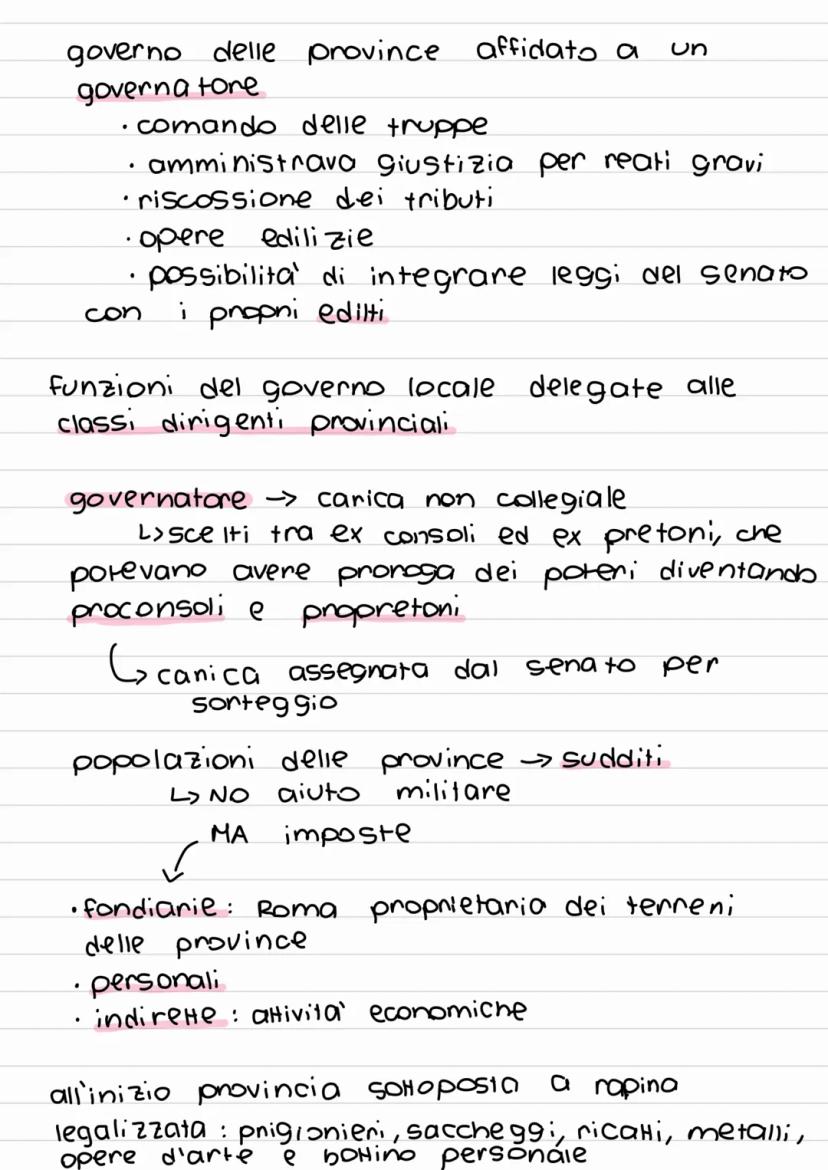 governo delle province affidato a un
governatore
· comando delle truppe
· amministrava giustizia per reati gravi
· riscossione dei tributi
· opere edilizie
· possibilità di integrare leggi del senato
con i propri editti
funzioni del governo locale delegate alle
classi dirigenti provinciali
governatore → carica non collegiale
↳ scelti tra ex consoli ed ex pretori, che
potevano avere proroga dei poteri diventando
proconsoli e propretori
↳ carica assegnata dal senato per
sorteggio
popolazioni delle province → sudditi
↳ NO aiuto militare
MA imposte
· fondiarie: Roma proprietaria dei terreni
delle province
· personali
· indirette: attività economiche
all'inizio provincia sottoposta a rapina
legalizzata: prigionieri, saccheggi, ricatti, metalli,
opere d'arte e bottino personale